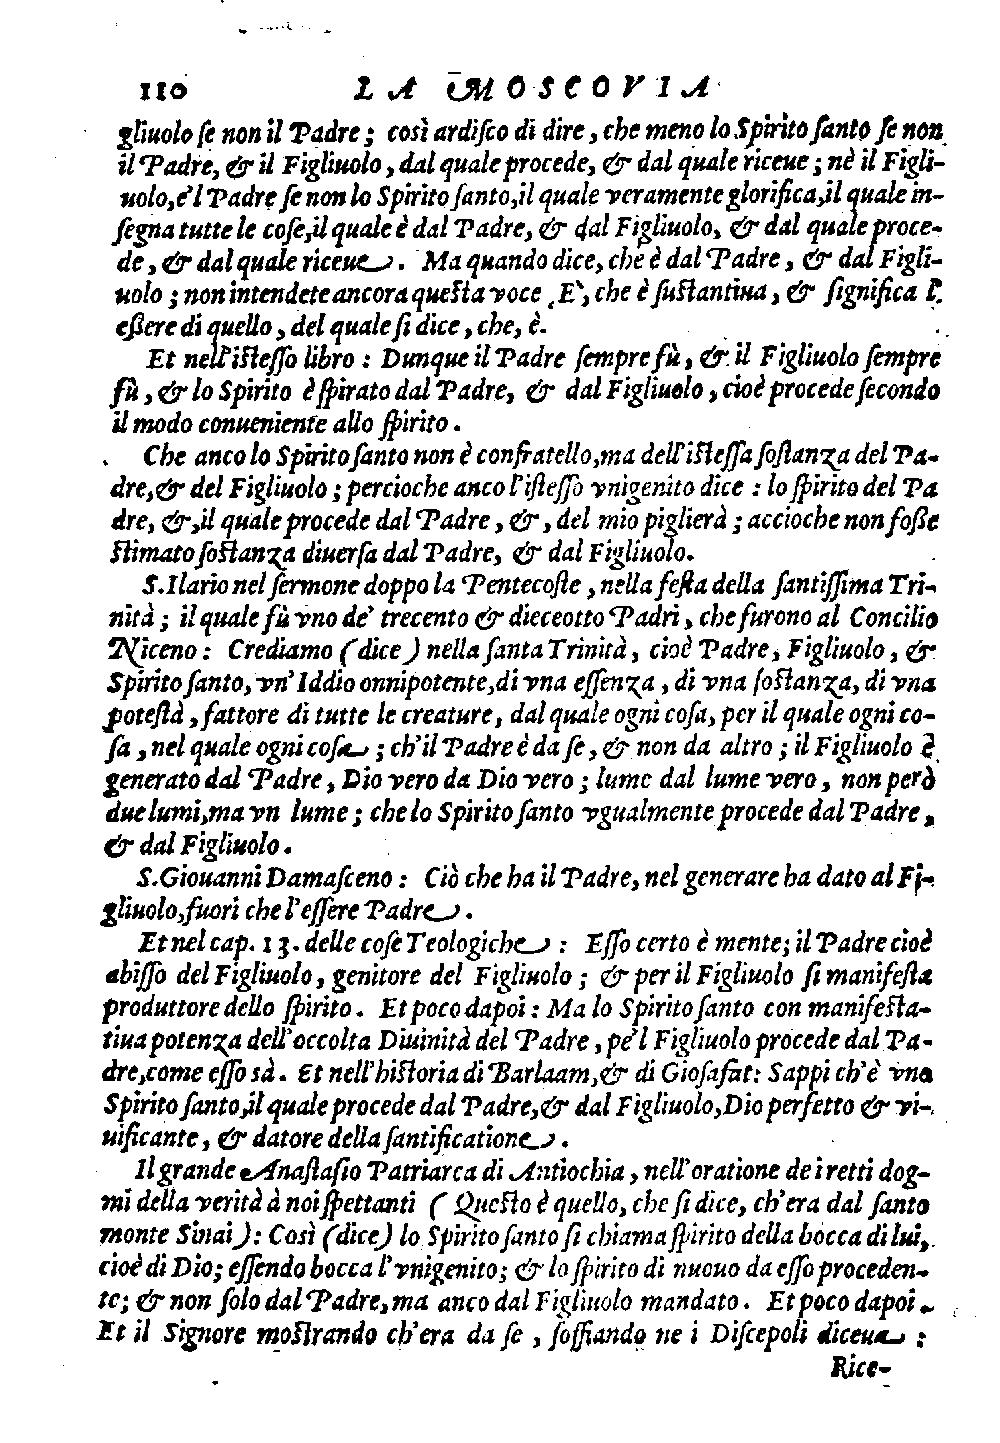 110 LA MOSCOVIA
gliuolo ſe non il Padre; così ardiſco di dire, che meno lo Spirito ſanto ſe non
il Padre, & il Figliuolo, dal quale procede, & dal quale riceue; nè il Figli-
uolo, e'l Padre ſe non lo Spirito ſanto, il quale veramente glorifica, il quale in-
ſegna tutte le coſe, il quale è dal Padre, & dal Figliuolo, & dal quale proce-
de, & dal quale riceue. Ma quando dice, che è dal Padre, & dal Figli-
uolo; non intendete ancora queſta voce, E', che è ſuſtantiua, & ſignifica l'
eſſere di quello, del quale ſi dice, che, è.
Et nell'iſteſſo libro: Dunque il Padre ſempre fù, & il Figliuolo ſempre
fù, & lo Spirito è ſpirato dal Padre, & dal Figliuolo, cioè procede ſecondo
il modo conueniente allo ſpirito.
Che anco lo Spirito ſanto non è confratello, ma dell'iſteſſa ſoſtanza del Pa-
dre, & del Figliuolo; percioche anco l'iſteſſo vnigenito dice: lo ſpirito del Pa
dre, &, il quale procede dal Padre, &, del mio piglierà; accioche non foſſe
ſtimato ſoſtanza diuerſa dal Padre, & dal Figliuolo.
S. Ilario nel ſermone doppo la Pentecoſte, nella feſta della ſantiſſima Tri-
nità; il quale fù vno de' trecento & dieceotto Padri, che furono al Concilio
Niceno: Crediamo (dice) nella ſanta Trinità, cioè Padre, Figliuolo, &
Spirito ſanto, vn'Iddio onnipotente, di vna eſſenza, di vna ſoſtanza, di vna
poteſtà, fattore di tutte le creature, dal quale ogni coſa, per il quale ogni co-
ſa, nel quale ogni coſa; ch'il Padre è da ſe, & non da altro; il Figliuolo è
generato dal Padre, Dio vero da Dio vero; lume dal lume vero, non però
due lumi, ma vn lume; che lo Spirito ſanto vgualmente procede dal Padre,
& dal Figliuolo.
S. Giouanni Damaſceno: Ciò che ha il Padre, nel generare ha dato al Fi-
gliuolo, fuori che l'eſſere Padre.
Et nel cap. 13. delle coſe Teologiche: Eſſo certo è mente; il Padre cioè
abiſſo del Figliuolo, genitore del Figliuolo; & per il Figliuolo ſi manifeſta
produttore dello ſpirito. Et poco dapoi: Ma lo Spirito ſanto con manifeſta-
tiua potenza dell'occolta Diuinità del Padre, pe'l Figliuolo procede dal Pa-
dre, come eſſo sà. Et nell'hiſtoria di Barlaam, & di Gioſafat: Sappi ch'è vno
Spirito ſanto, il quale procede dal Padre, & dal Figliuolo, Dio perfetto & vi-
uificante, & datore della ſantificatione.
Il grande Anaſtaſio Patriarca di Antiochia, nell'oratione de i retti dog-
mi della verità à noi ſpettanti (Queſto è quello, che ſi dice, ch'era dal ſanto
monte Sinai): Così (dice) lo Spirito ſanto ſi chiama ſpirito della bocca di lui,
cioè di Dio; eſſendo bocca l'vnigenito; & lo ſpirito di nuouo da eſſo proceden-
te; & non ſolo dal Padre, ma anco dal Figliuolo mandato. Et poco dapoi.
Et il Signore moſtrando ch'era da ſe, ſoffiando ne i Diſcepoli diceua:
Rice-